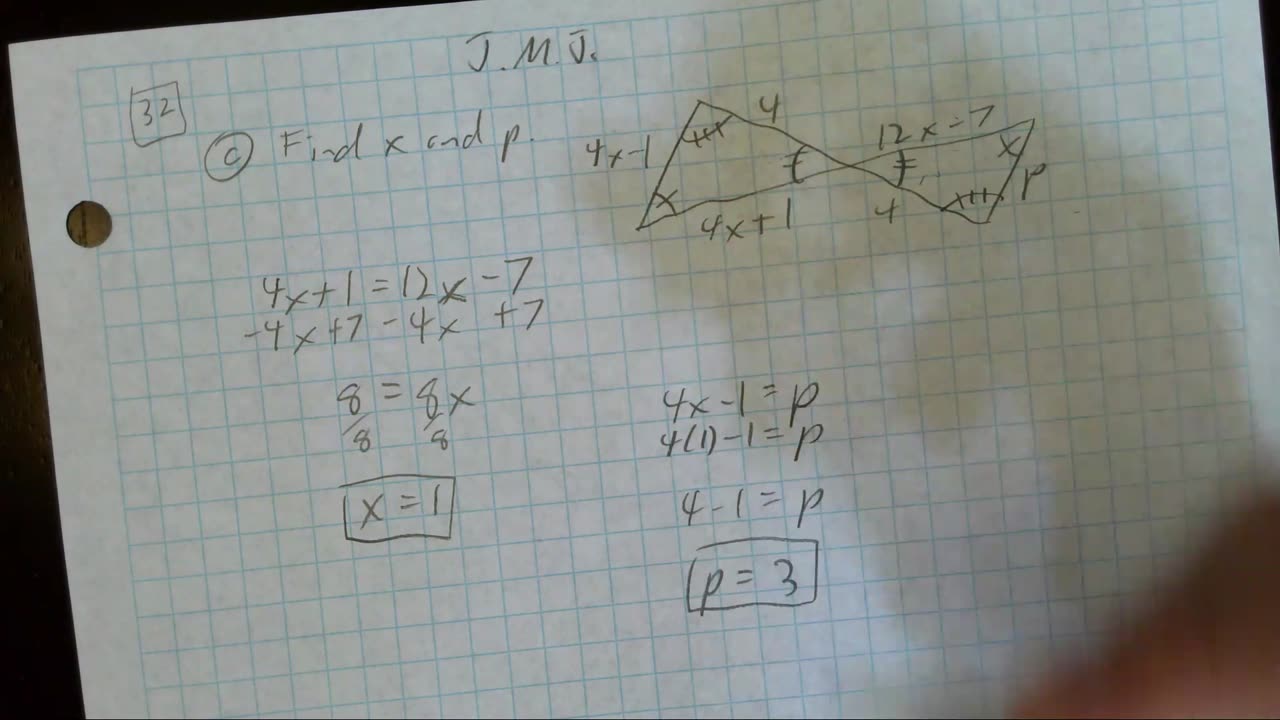 J.M.J.
32
c Find x and p.
4
12x-7
4x-1
4x+1
4
p
4x+1=12x-7
-4x+7-4x +7
8=8x
/8 /8
x=1
4x-1=p
4(1)-1=p
4-1=p
p=3